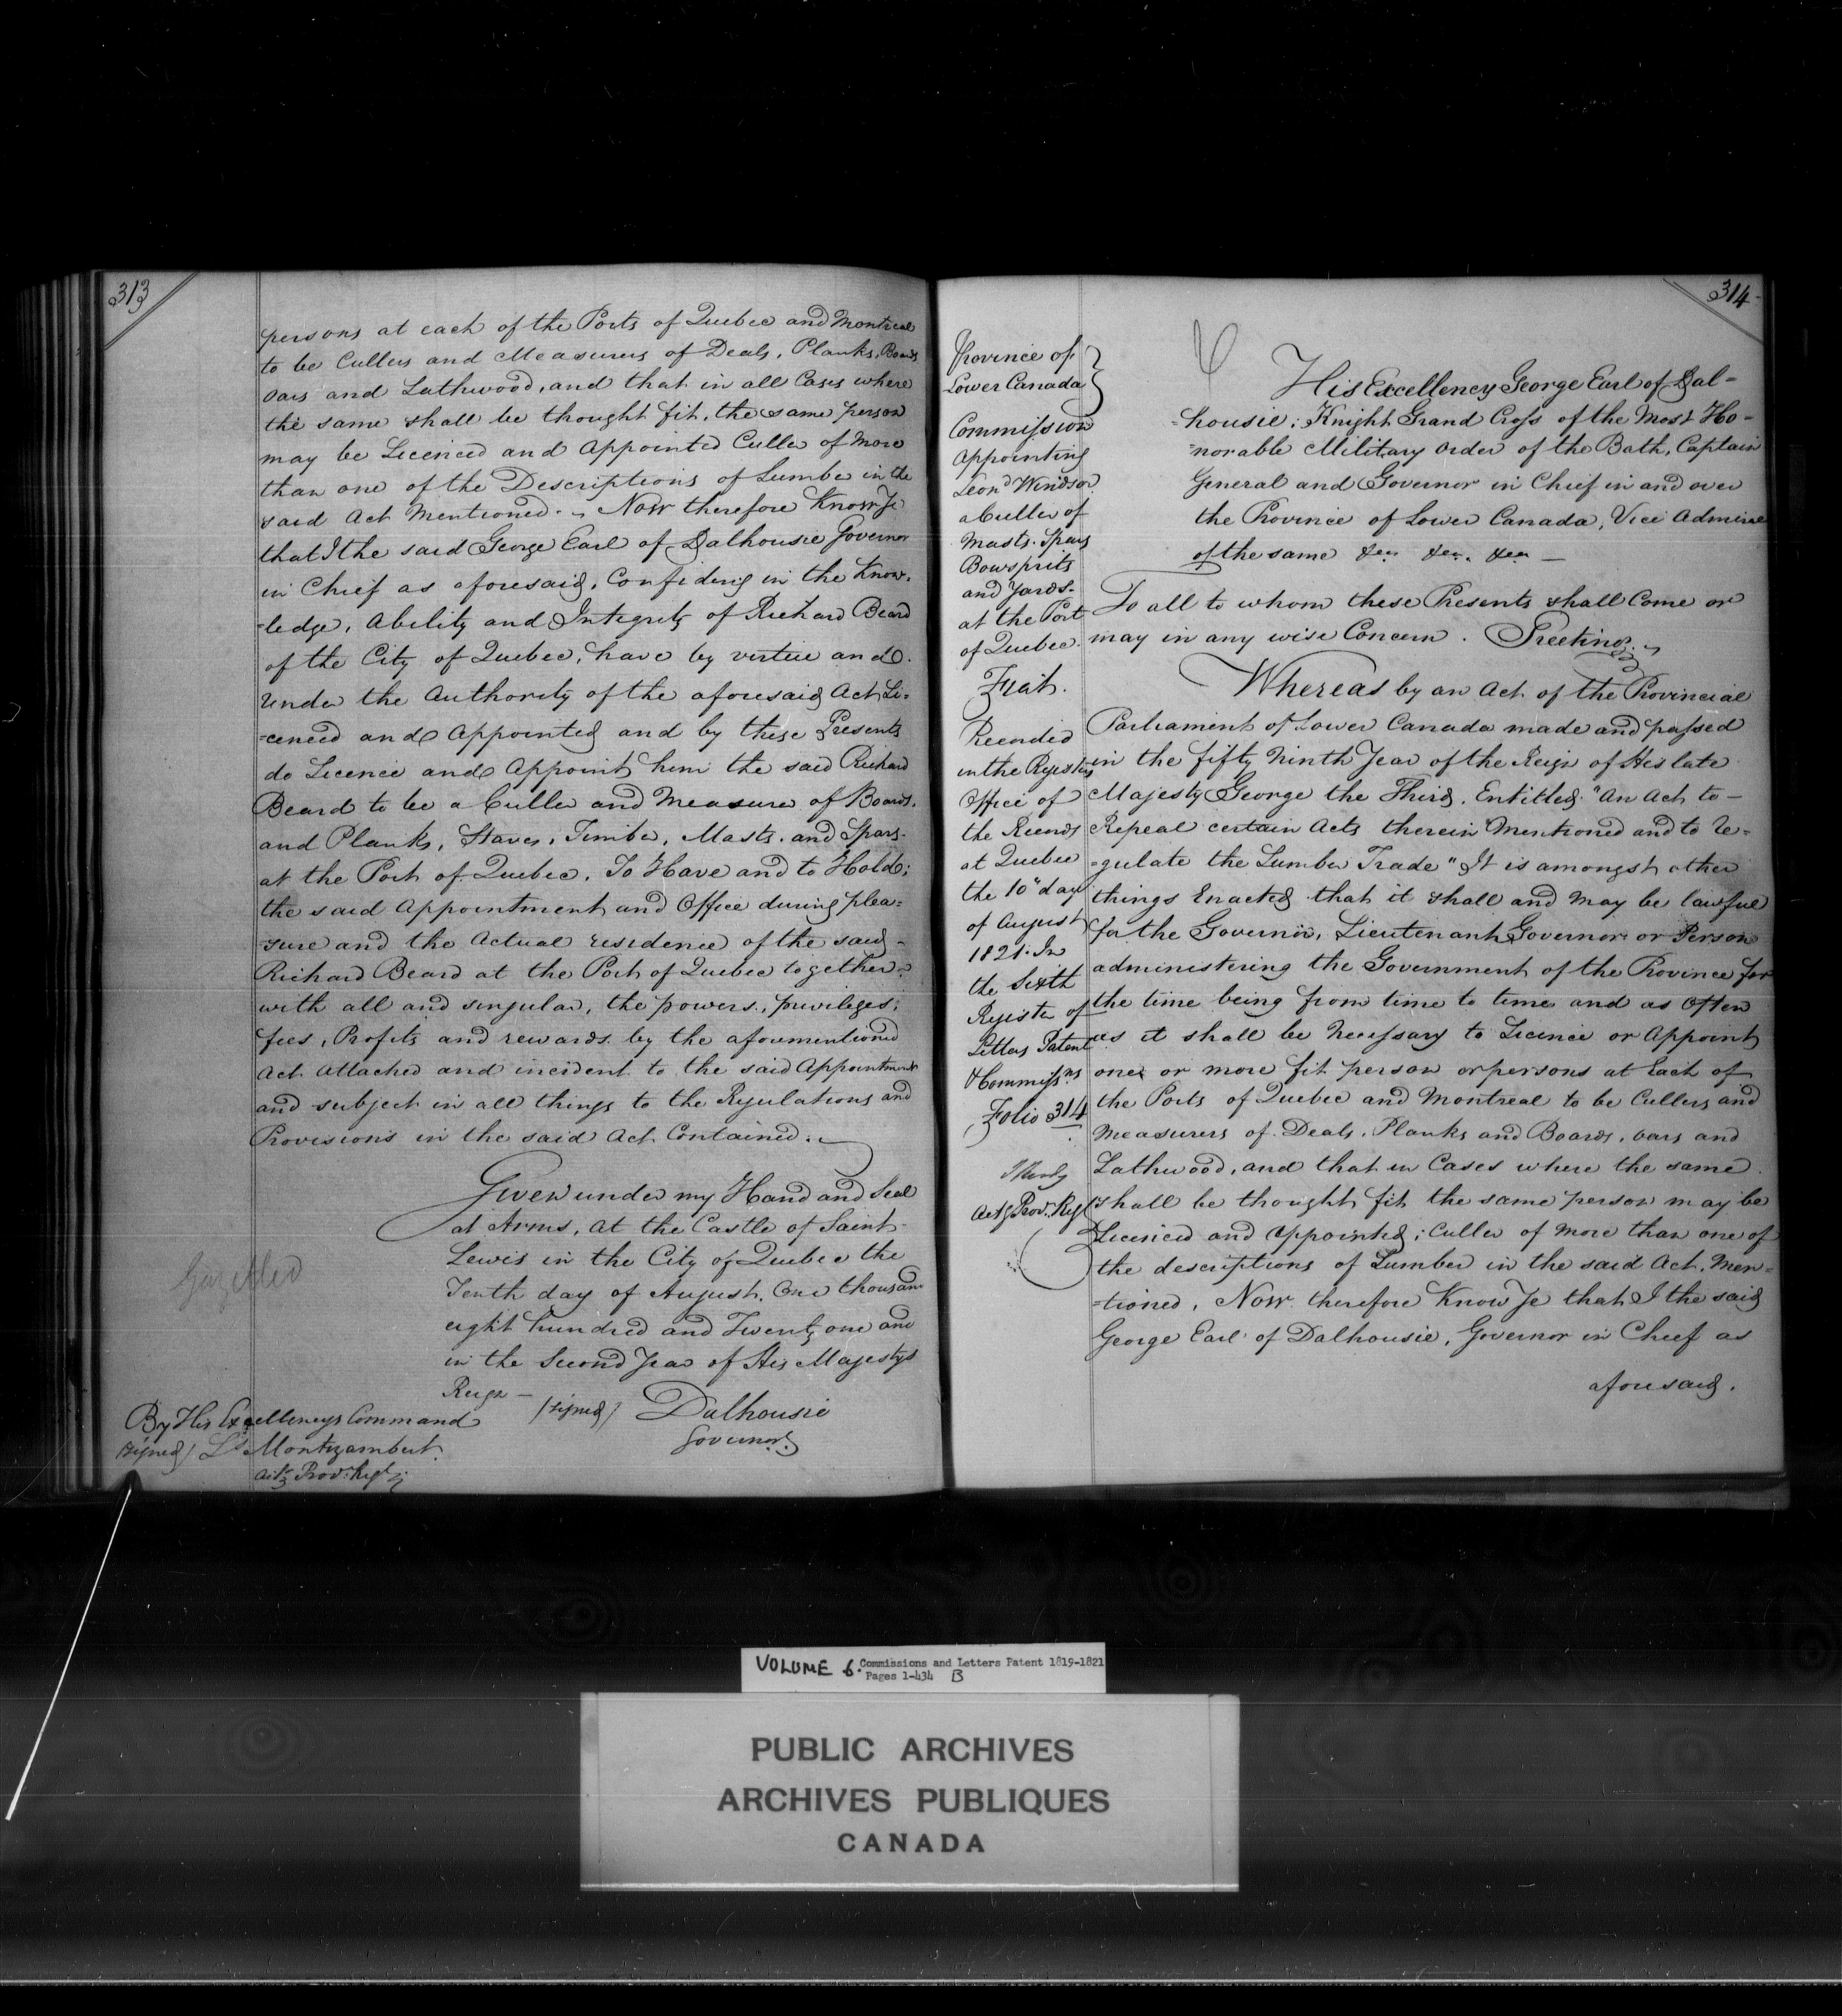 313
persons at each of the Ports of Quebec and Montreal
to be Cullers and Measurers of Deals, Planks, Boards
Oars and Lathwood, and that in all Cases where
the same shall be thought fit, the same person
may be Licenced and Appointed Culler of More
than one of the Descriptions of Lumber in the
said Act Mentioned. Now therefore Know Ye
that I the said George Earl of Dalhousie Governor
in Chief as aforesaid, Confiding in the Know-
=ledge, Ability and Integrity of Richard Beard
of the City of Quebec, have by virtue and
Under the Authority of the aforesaid Act Li=
=cenced and Appointed and by these Presents
do Licence and Appoint him the said Richard
Beard to be a Culler and Measure of Boards,
and Planks, Staves, Timber, Masts, and Spars-
at the Port of Quebec, To Have and to Hold;
the said Appointment and Office during plea=
sure and the Actual residence of the said -
Richard Beard at the Port of Quebec together
with all and singular, the powers, privileges,
fees, Profits and rewards by the aforementioned
Act Attached and incident to the said Appointment
and subject in all things to the Regulations and
Provisions in the said Act Contained.
Given under my Hand and Seal
at Arms, at the Castle of Saint
Lewis in the City of Quebec the
Tenth day of August, One thousand
eight hundred and Twenty one and
in the Second Year of His Majestys
Reign - (signed) Dalhousie
Governor
Gazetted
By His Excellencys Command
signed) Ls Montizambert
Actg Prov: Regr
314
Province of
Lower Canada
Commission
Appointing
Leond Windsor
a Culler of
Masts. Spars
Bowsprits
and Yards-
at the Port
of Quebec.
Fiat.
Recorded
in the Registers
Office of
the Records
at Quebec
the 10th day
of August
1821. In
the Sixth
Register of
Letters Patent
& Commissns
Folio 314
Actg Prov: Regr
His Excellency George Earl of Dal=
=housie; Knight Grand Cross of the Most Ho-
=norable Military Order of the Bath, Captain
General and Governor in Chief in and over
the Province of Lower Canada, Vice Admiral
of the same &ca &ca. &ca —
To all to whom these Presents shall Come or
may in any wise Concern. Greeting.
Whereas by an Act of the Provincial
Parliament of Lower Canada made and passed
in the fifty Ninth Year of the Reign of His late
Majesty George the Third, Entitled "An Act to -
Repeal certain Acts therein Mentioned and to Re-
=gulate the Lumber Trade" It is amongst other
things Enacted that it shall and may be lawful
for the Governor, Lieutenant Governor or Person
administering the Government of the Province for
the time being from time to time and as Often
as it shall be Necessary to Licence or Appoint
one or more fit person or persons at Each of
the Ports of Quebec and Montreal to be Cullers and
Measurers of Deals, Planks and Boards, oars and
Lathwood, and that in Cases where the same
shall be thought fit the same person may be
Licenced and Appointed; Culler of More than one of
the descriptions of Lumber in the said Act, Men=
=tioned, Now therefore Know Ye that I the said
George Earl of Dalhousie, Governor in Chief as
aforesaid.
VOLUME 6. Commissions and Letters Patent 1819-1821
Pages 1-434 B
PUBLIC ARCHIVES
ARCHIVES PUBLIQUES
CANADA